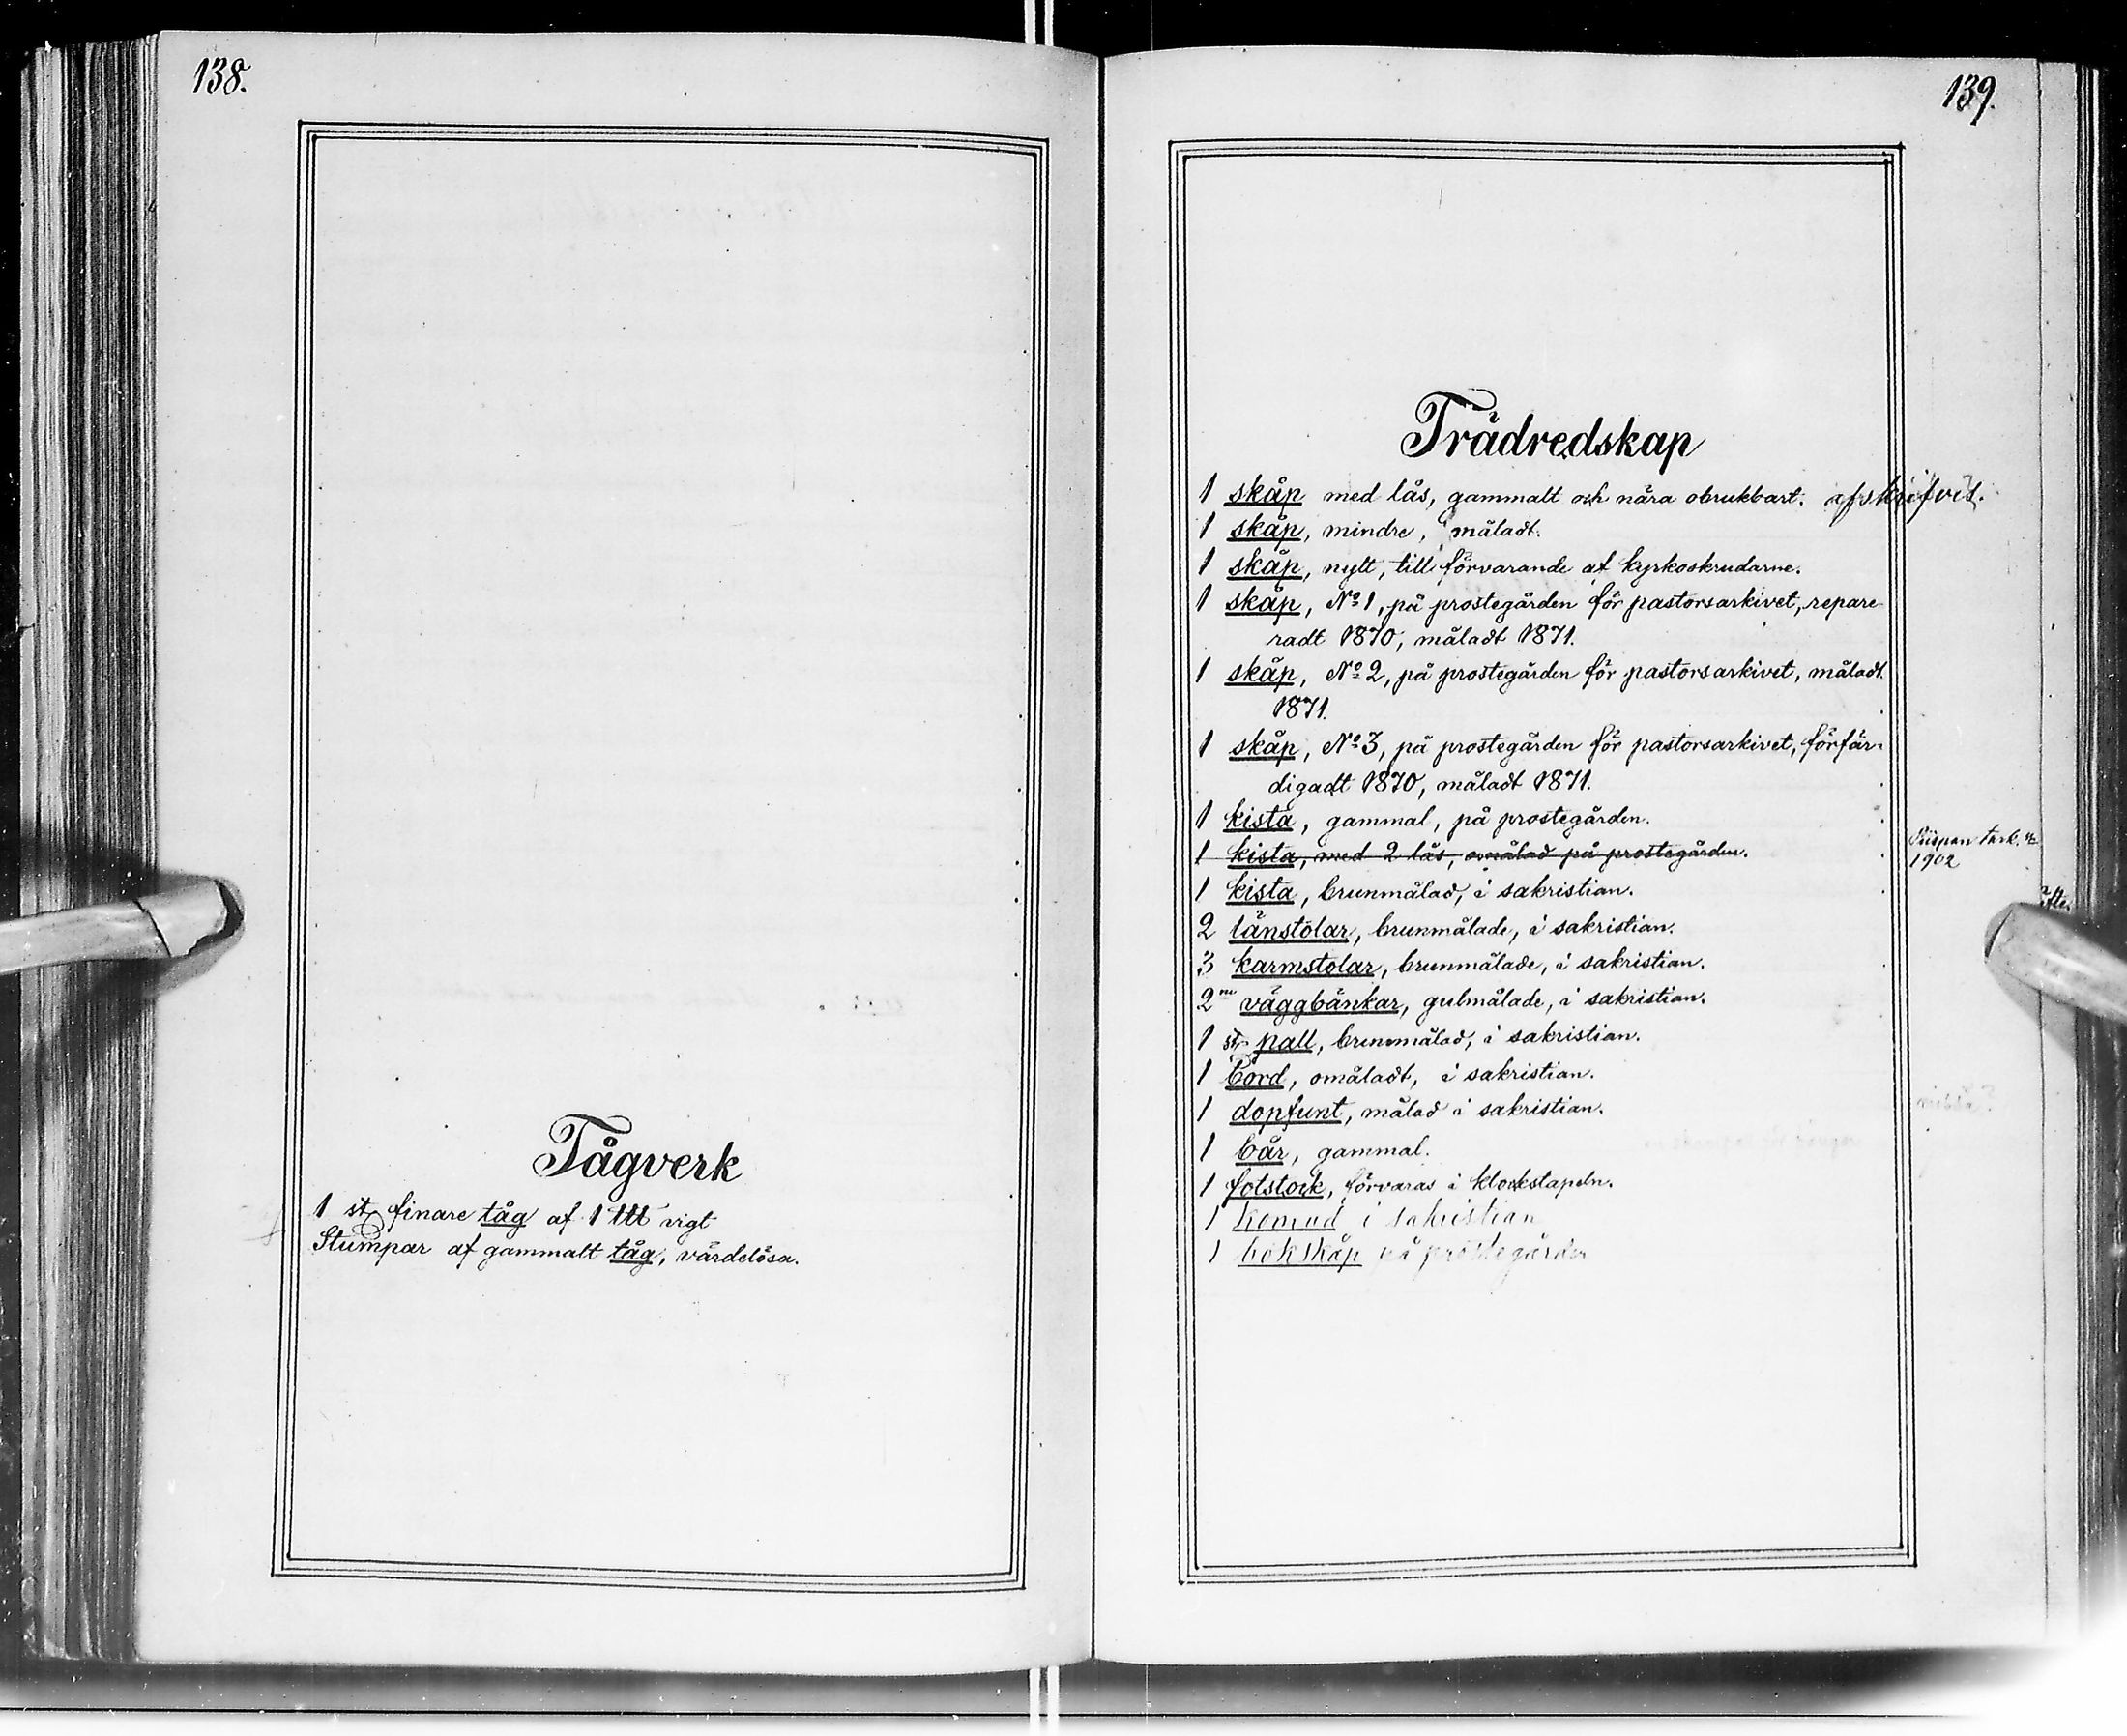 138.
Tågverk
1 st. finare tåg af 1 ℔ vigt
Stumpar af gammalt tåg, värdelösa.
139.
Trädredskap
1 skåp med lås, gammalt och nära obrukbart. afskrifvet.
1 skåp, mindre, måladt.
1 skåp, nytt, till förvarande af kyrkoskrudarne.
1 skåp, No 1, på prostegården för pastorsarkivet, repare
radt 1870, måladt 1871.
1 skåp, No 2, på prostegården för pastorsarkivet, måladt
1871.
1 skåp, No 3, på prostegården för pastorsarkivet, förfär-
digadt 1870, måladt 1871.
1 kista, gammal, på prostegården.
1 kista, med 2 lås, omålad på prostegården. Piispan tark.
1902
1 kista, brunmålad, i sakristian.
2 länstolar, brunmålade, i sakristian.
3 karmstolar, brunmålade, i sakristian.
2ne väggbänkar, gulmålade, i sakristian.
1 st. pall, brunmålad, i sakristian.
1 bord, omåladt, i sakristian.
1 dopfunt, målad i sakristian.
1 bår, gammal.
1 fotstock, förvaras i klockstapeln.
1 komud i sakristian
1 bokskåp på prostegården